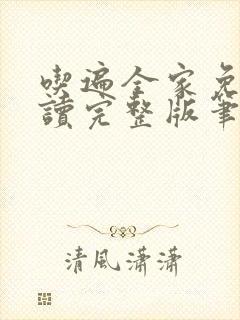 喫遍全家免
讀完整版筆
清風瀟瀟